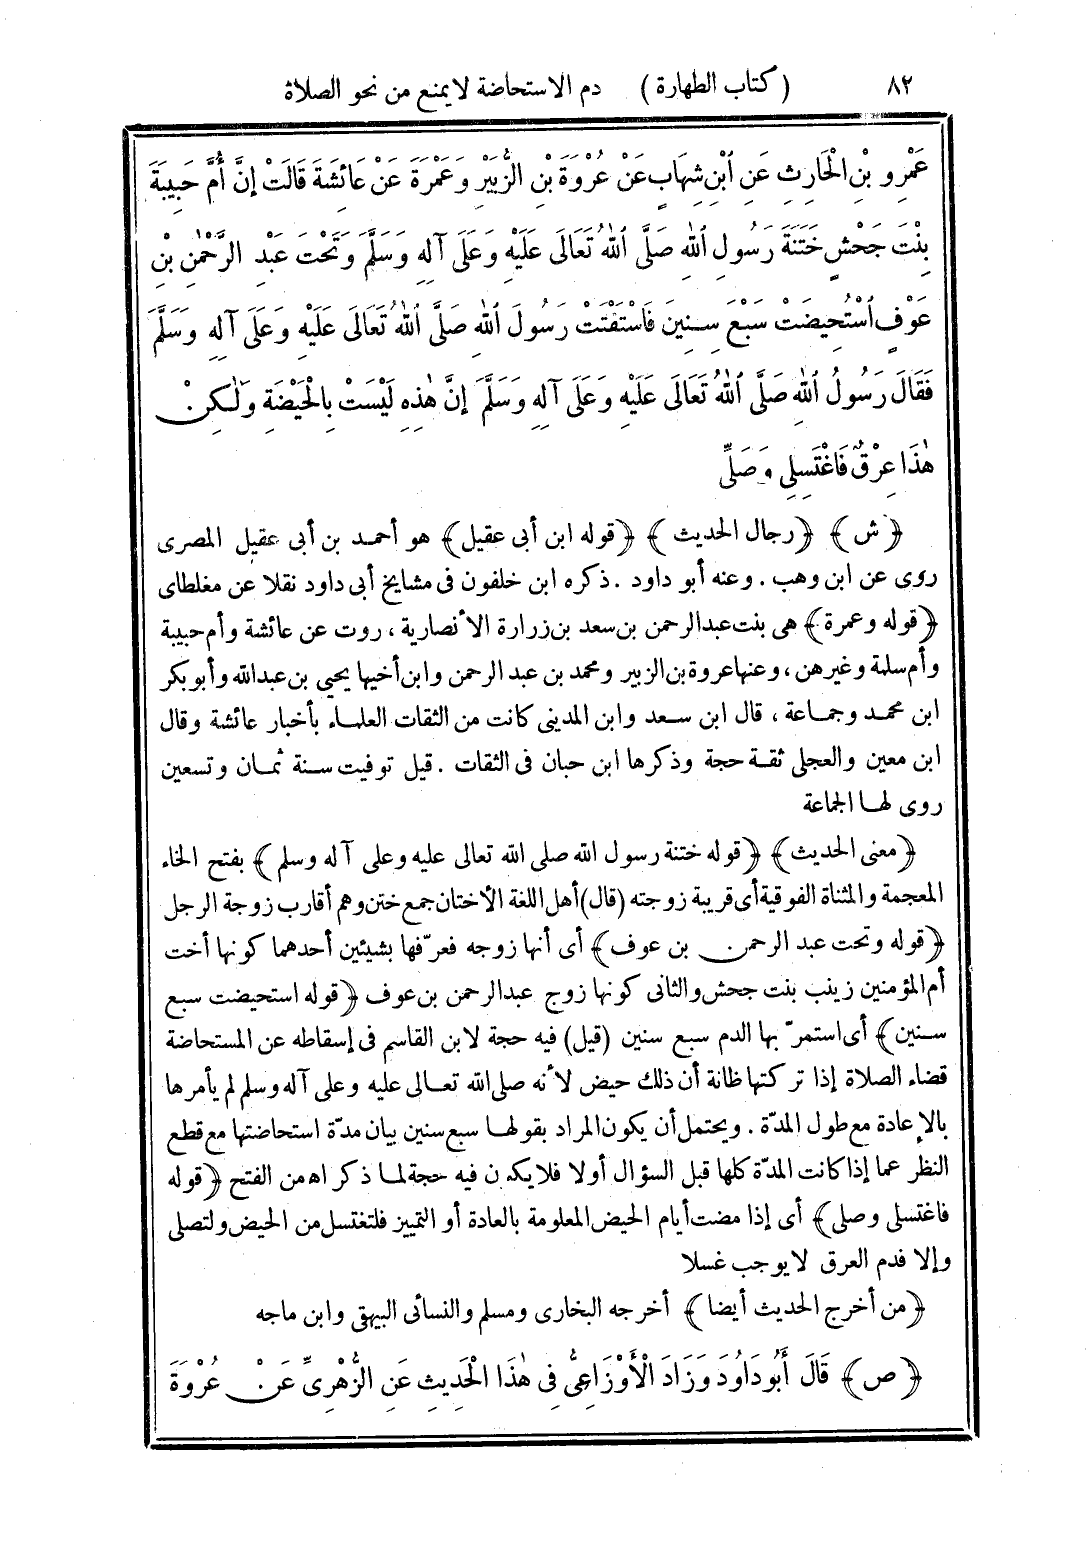 ٨٢ (كتاب الطهارة) دم الاستحاضة لا يمنع من نحو الصلاة
عَمْرِو بْنِ الْحَارِثِ عَنِ ٱبْنِ شِهَابٍ عَنْ عُرْوَةَ بْنِ الزُّبَيْرِ وَعَمْرَةَ عَنْ عَائِشَةَ قَالَتْ إِنَّ أُمَّ حَبِيبَةَ
بِنْتَ جَحْشٍ خَتَنَةَ رَسُولِ ٱللهِ صَلَّى ٱللهُ تَعَالَى عَلَيْهِ وَعَلَى آلِهِ وَسَلَّمَ وَتَحْتَ عَبْدِ الرَّحْمٰنِ بْنِ
عَوْفٍ ٱسْتُحِيضَتْ سَبْعَ سِنِينَ فَاسْتَفْتَتْ رَسُولَ ٱللهِ صَلَّى ٱللهُ تَعَالَى عَلَيْهِ وَعَلَى آلِهِ وَسَلَّمَ
فَقَالَ رَسُولُ ٱللهِ صَلَّى ٱللهُ تَعَالَى عَلَيْهِ وَعَلَى آلِهِ وَسَلَّمَ إِنَّ هٰذِهِ لَيْسَتْ بِالْحَيْضَةِ وَلٰكِنْ
هٰذَا عِرْقٌ فَاغْتَسِلِي وَصَلِّي
﴿ش﴾ ﴿رجال الحديث﴾ ﴿قوله ابن أبى عقيل﴾ هو أحمد بن أبى عقيل المصرى
روى عن ابن وهب . وعنه أبو داود . ذكره ابن خلفون فى مشايخ أبى داود نقلا عن مغلطاى
﴿قوله وعمرة﴾ هى بنت عبدالرحمن بن سعد بن زرارة الأنصارية ، روت عن عائشة وأم حبيبة
وأم سلمة وغيرهن ، وعنها عروة بن الزبير ومحمد بن عبد الرحمن وابن أخيها يحيى بن عبدالله وأبو بكر
ابن محمد وجماعة ، قال ابن سعد وابن المدينى كانت من الثقات العلماء بأخبار عائشة وقال
ابن معين والعجلى ثقة حجة وذكرها ابن حبان فى الثقات . قيل توفيت سنة ثمان وتسعين
روى لها الجماعة
﴿معنى الحديث﴾ ﴿قوله ختنة رسول الله صلى الله تعالى عليه وعلى آله وسلم﴾ بفتح الخاء
المعجمة والمثناة الفوقية أى قريبة زوجته (قال) أهل اللغة الأختان جمع ختن وهم أقارب زوجة الرجل
﴿قوله وتحت عبد الرحمن بن عوف﴾ أى أنها زوجه فعرّفها بشيئين أحدهما كونها أخت
أم المؤمنين زينب بنت جحش والثانى كونها زوج عبدالرحمن بن عوف ﴿قوله استحيضت سبع
سنين﴾ أى استمرّ بها الدم سبع سنين (قيل) فيه حجة لابن القاسم فى إسقاطه عن المستحاضة
قضاء الصلاة إذا تركتها ظانة أن ذلك حيض لأنه صلى الله تعالى عليه وعلى آله وسلم لم يأمرها
بالإعادة مع طول المدّة . ويحتمل أن يكون المراد بقولها سبع سنين بيان مدّة استحاضتها مع قطع
النظر عما إذا كانت المدّة كلها قبل السؤال أولا فلا يكون فيه حجة لما ذكر اه من الفتح ﴿قوله
فاغتسلى وصلى﴾ أى إذا مضت أيام الحيض المعلومة بالعادة أو التمييز فلتغتسل من الحيض ولتصلى
وإلا فدم العرق لا يوجب غسلا
﴿من أخرج الحديث أيضا﴾ أخرجه البخارى ومسلم والنسائى البيهقى وابن ماجه
﴿ص﴾ قَالَ أَبُودَاوُدَ وَزَادَ الْأَوْزَاعِىُّ فِى هٰذَا الْحَدِيثِ عَنِ الزُّهْرِىِّ عَنْ عُرْوَةَ